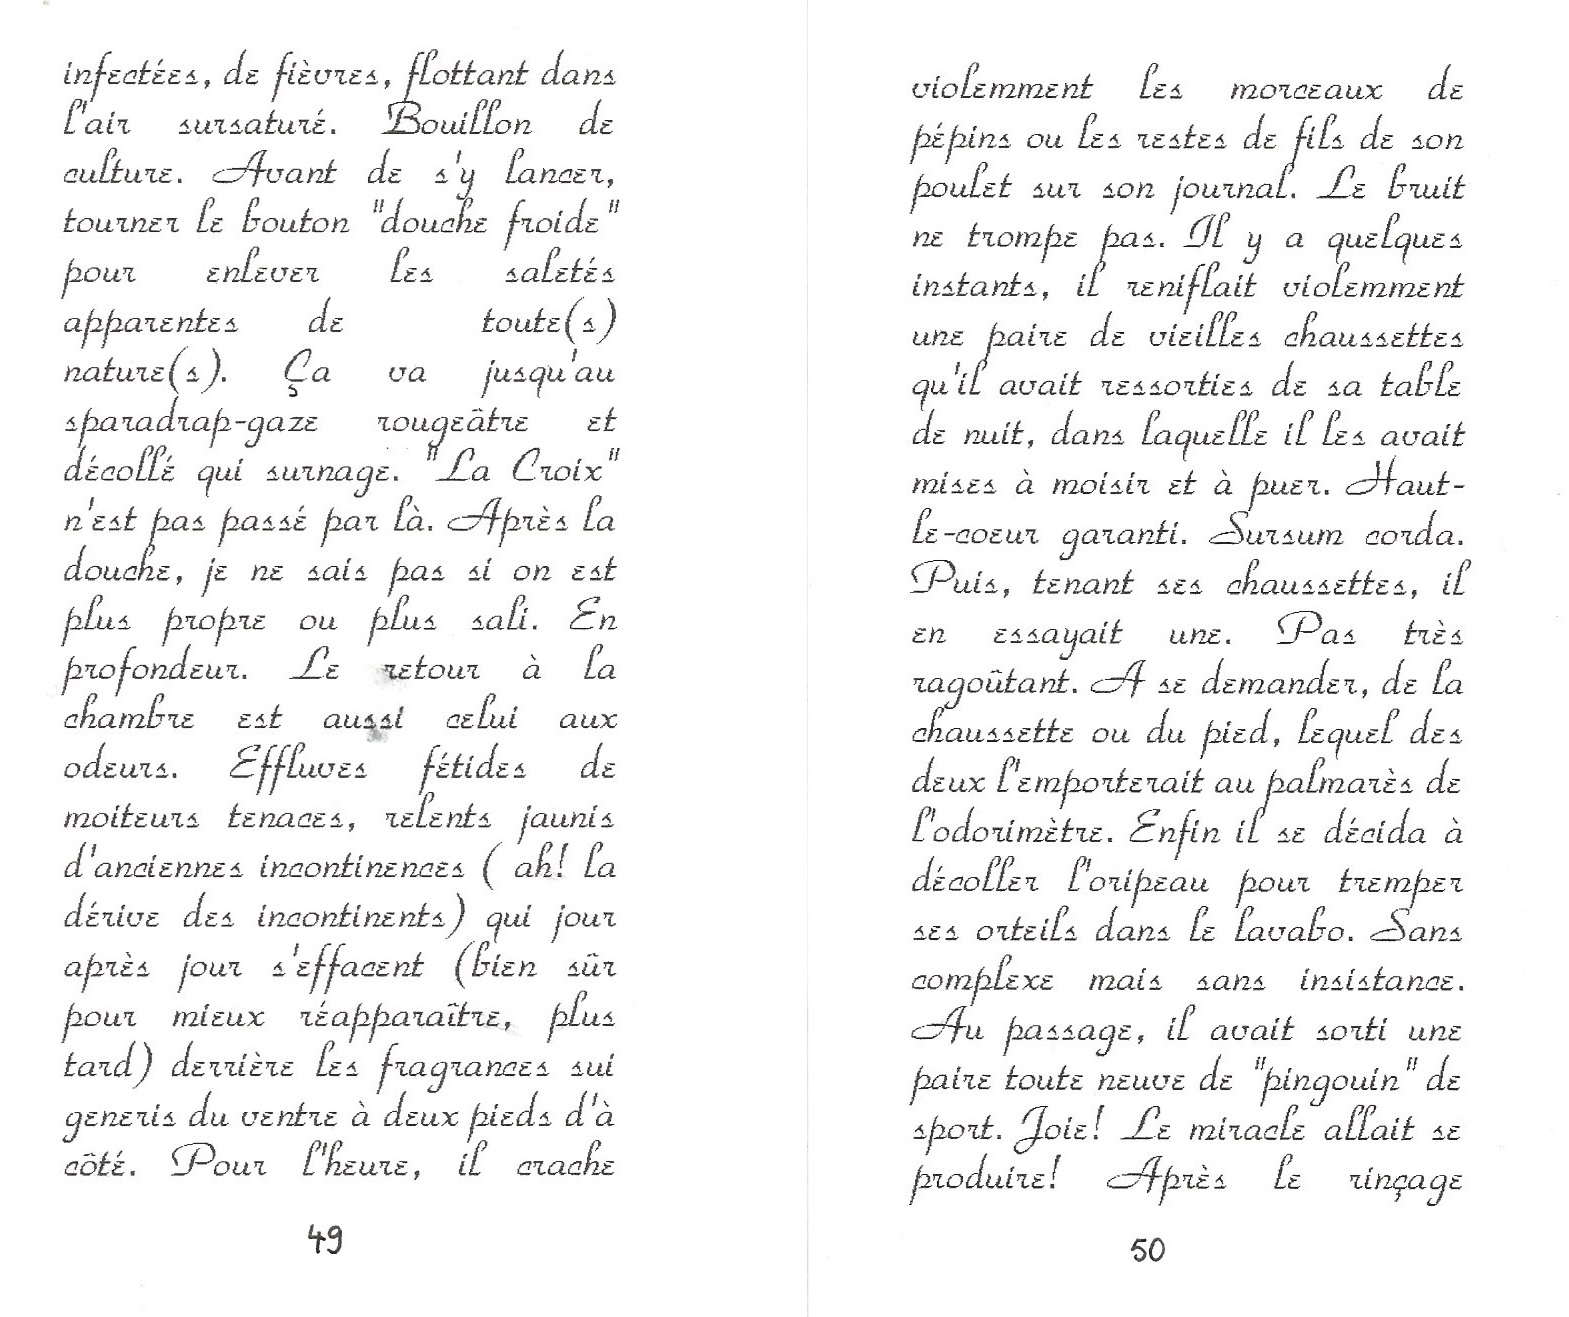 infectées, de fièvres, flottant dans
l'air sursaturé. Bouillon de
culture. Avant de s'y lancer,
tourner le bouton "douche froide"
pour enlever les saletés
apparentes de toute(s)
nature(s). Ça va jusqu'au
sparadrap-gaze rougeâtre et
décollé qui surnage. "La Croix"
n'est pas passé par là. Après la
douche, je ne sais pas si on est
plus propre ou plus sali. En
profondeur. Le retour à la
chambre est aussi celui aux
odeurs. Effluves fétides de
moiteurs tenaces, relents jaunis
d'anciennes incontinences ( ah! la
dérive des incontinents) qui jour
après jour s'effacent (bien sûr
pour mieux réapparaître, plus
tard) derrière les fragrances sui
generis du ventre à deux pieds d'à
côté. Pour l'heure, il crache
49
violemment les morceaux de
pépins ou les restes de fils de son
poulet sur son journal. Le bruit
ne trompe pas. Il y a quelques
instants, il reniflait violemment
une paire de vieilles chaussettes
qu'il avait ressorties de sa table
de nuit, dans laquelle il les avait
mises à moisir et à puer. Haut-
le-coeur garanti. Sursum corda.
Puis, tenant ses chaussettes, il
en essayait une. Pas très
ragoûtant. A se demander, de la
chaussette ou du pied, lequel des
deux l'emporterait au palmarès de
l'odorimètre. Enfin il se décida à
décoller l'oripeau pour tremper
ses orteils dans le lavabo. Sans
complexe mais sans insistance.
Au passage, il avait sorti une
paire toute neuve de "pingouin" de
sport. Joie! Le miracle allait se
produire! Après le rinçage
50